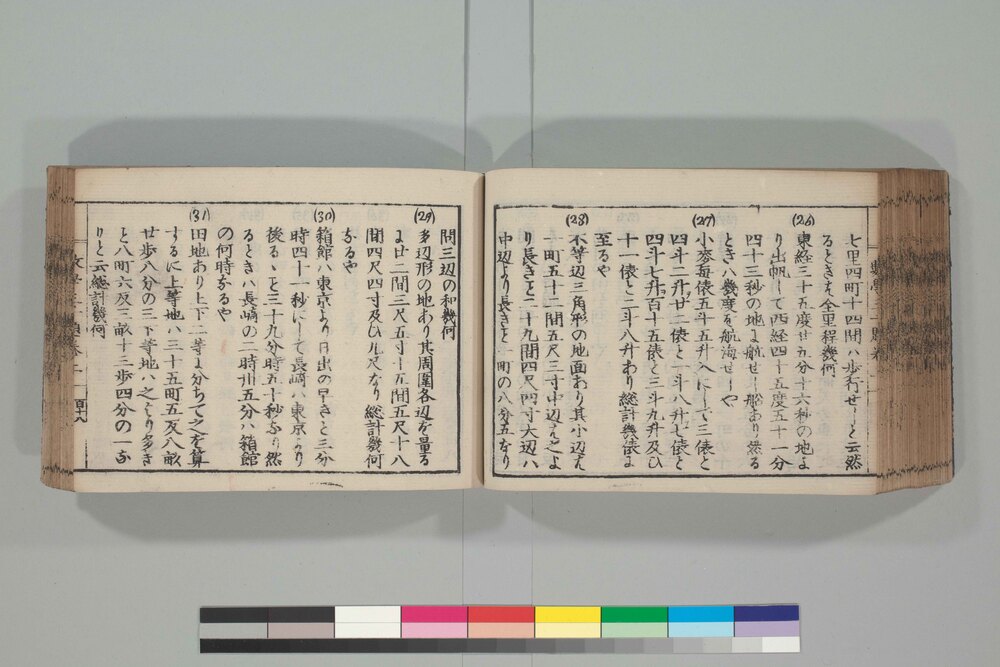 七里四町十四間ハ歩行せしと云然
るときは全里程幾何
(26)
東経三十五度廿五分十六秒の地よ
り出帆して西経四十五度五十一分
四十三秒の地に航せし船あり然る
ときハ幾度を航海せしや
(27)
小麦毎俵五斗五升入にして三俵と
四斗二升廿二俵と一斗八升七俵と
四斗七升百十五俵と三斗九升及ひ
十一俵と二斗八升あり総計幾俵に
至るや
(28)
不等辺三角形の地面あり其小辺は
十町五十二間五尺三寸中辺は之よ
り長きこと二十九間四尺四寸大辺ハ
中辺より長きこと一町の八分五なり
問三辺の和幾何
(29)
多辺形の地あり其周囲各辺を量る
に廿二間三尺五寸十五間五尺十八
間四尺四寸及ひ九尺なり総計幾何
なるや
(30)
箱館ハ東京より日出の早きこと三分
時四十一秒にして長崎ハ東京より
後るゝこと三十九分時五十秒なり然
るときハ長崎の二時卅五分ハ箱館
の何時なるや
(31)
田地あり上下二等に分ちて之を算
するに上等地ハ三十五町五反八畝
廿歩八分の三下等地ハ之より多き
こと八町六反三畝十三歩四分の一な
りと云総計幾何